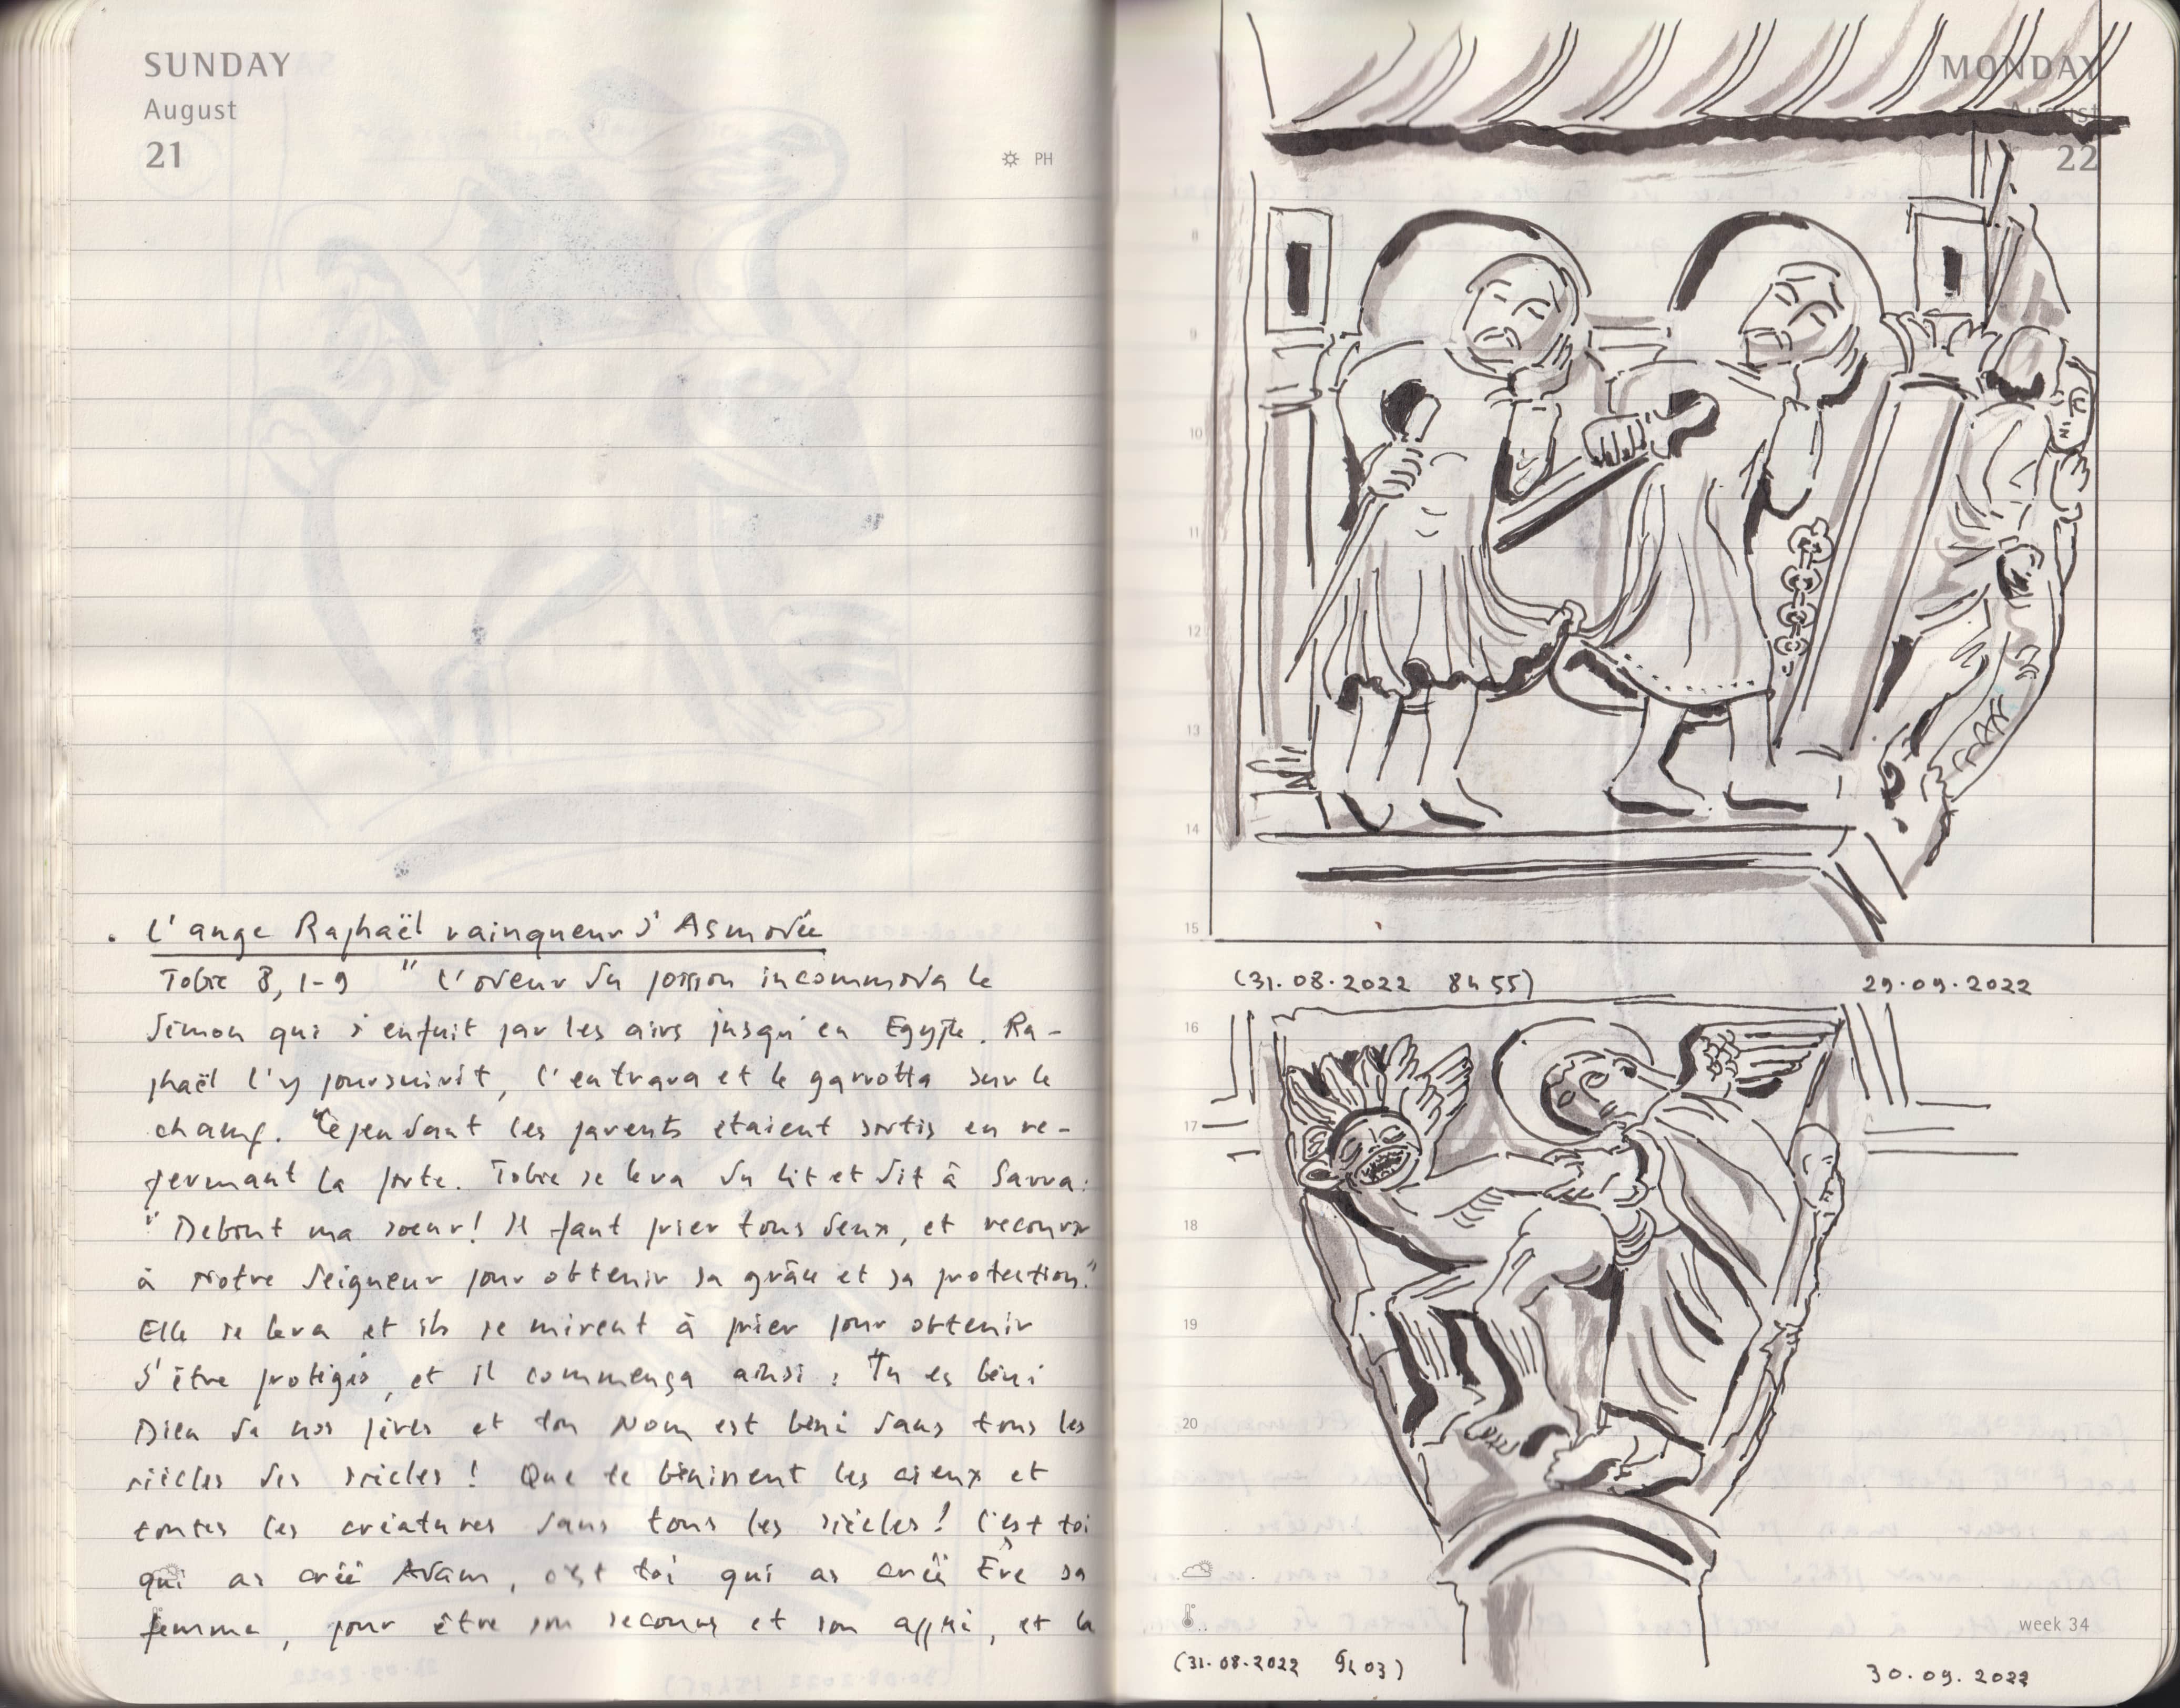 SUNDAY
August
21
PH
. L'ange Raphaël vainqueur d'Asmodée
Tobie 8, 1-9 " L'odeur du poisson incommoda le
démon qui s'enfuit par les airs jusqu'en Egypte. Ra-
phaël l'y poursuivit, l'entrava et le garrotta sur le
champ. "Cependant les parents étaient sortis en re-
fermant la porte. Tobie se leva du lit et dit à Sarra:
" Debout ma soeur! Il faut prier tous deux, et recourir
à Notre Seigneur pour obtenir sa grâce et sa protection."
Elle se leva et ils se mirent à prier pour obtenir
d'être protégés, et il commença ainsi : "Tu es béni
Dieu de nos pères et ton Nom est béni dans tous les
siècles des siècles ! Que te bénissent les cieux et
toutes les créatures dans tous les siècles ! C'est toi
qui as créé Adam, c'est toi qui as créé Ève sa
femme, pour être son secours et son appui, et la
MONDAY
August
22
8
9
10
11
12
13
14
15
(31.08.2022 8h55) 29.09.2022
16
17
18
19
20
week 34
(31.08.2022 9h03) 30.09.2022